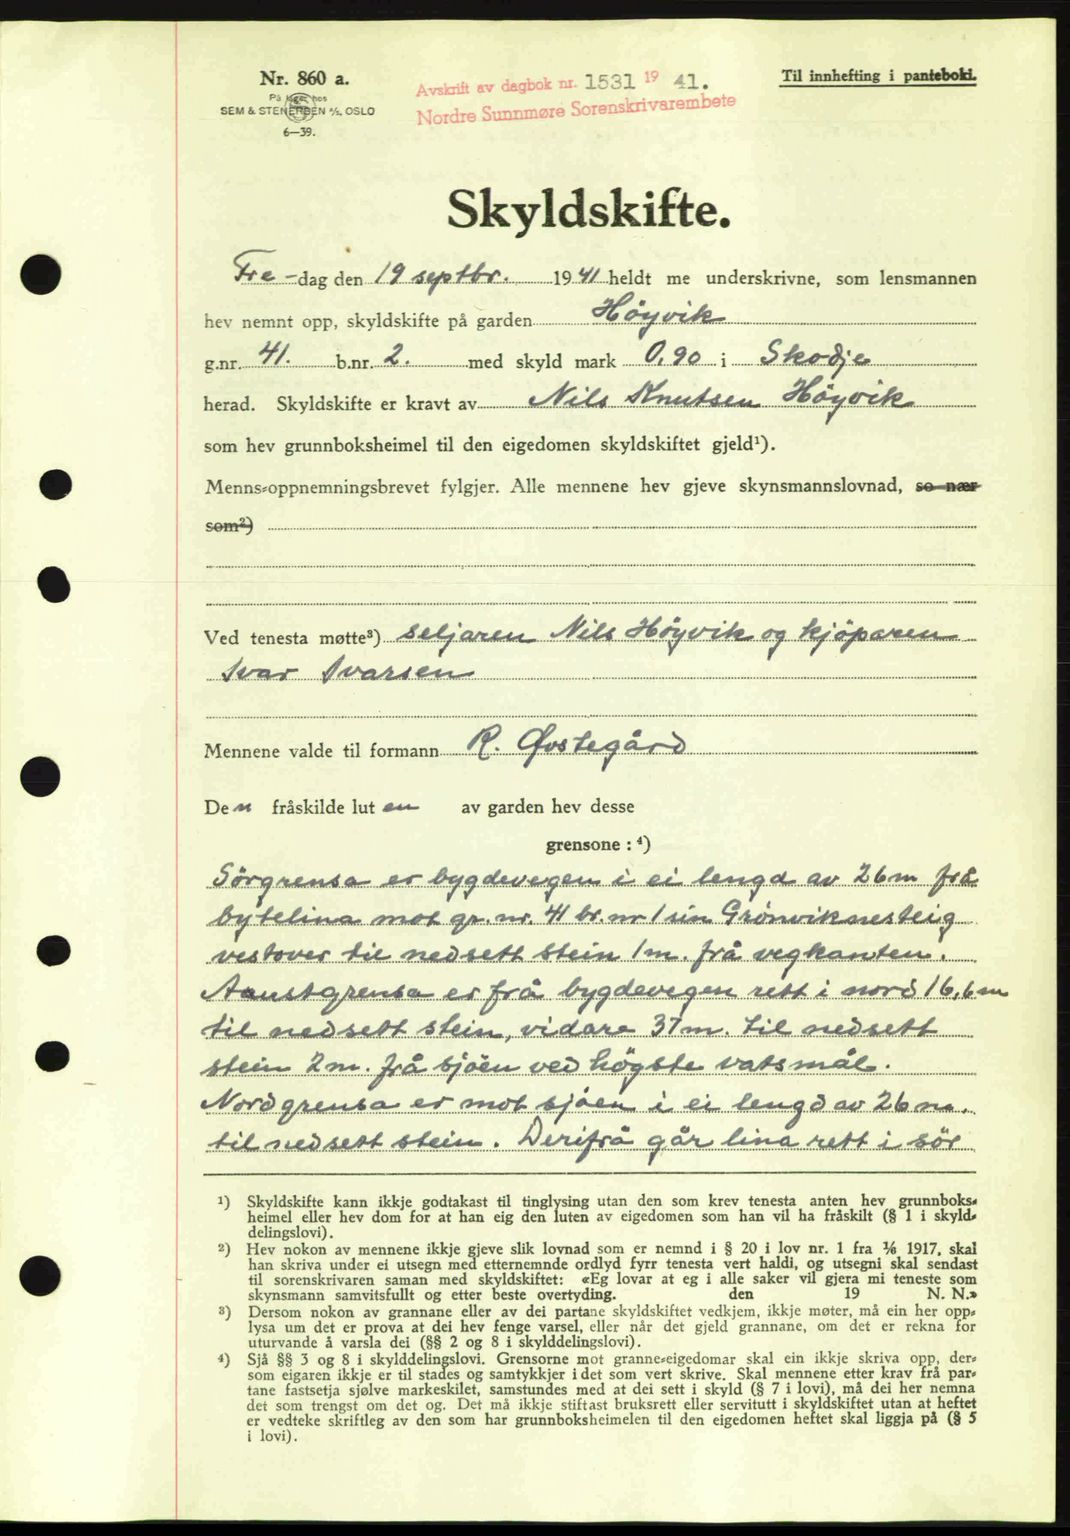 Nr. 860 a.
På lager hos
SEM & STENERSEN A/S, OSLO
6—39.
Avskrift av dagbok nr. 1531 1941.
Nordre Sunnmøre Sorenskrivarembete
Til innhefting i panteboki.
Skyldskifte.
Fre-dag den 19 septbr. 1941 heldt me underskrivne, som lensmannen
hev nemnt opp, skyldskifte på garden Höyvik
g.nr. 41. b.nr. 2. med skyld mark 0,90 i Skodje
herad. Skyldskifte er kravt av Nils Knutsen Höyvik
som hev grunnboksheimel til den eigedomen skyldskiftet gjeld¹).
Menns-oppnemningsbrevet fylgjer. Alle mennene hev gjeve skynsmannslovnad, so nær
som²)
Ved tenesta møtte³) seljaren Nils Höyvik og kjöparen
Ivar Ivarsen
Mennene valde til formann R. Øvstegård
Den fråskilde luten av garden hev desse
grensone : ⁴)
Sörgrensa er bygdevegen i ei lengd av 26 m frå
bytelina mot gr. nr. 41 br. nr 1 sin Grönviknesteig
vestover til nedsett stein 1 m. frå vegkanten.
Aaustgrensa er frå bygdevegen rett i nord 16,6 m
til nedsett stein, vidare 37 m. til nedsett
stein 2 m. frå sjöen ved högste vatsmål.
Nordgrensa er mot sjöen i ei lengd av 26 m.
til nedsett stein. Derifrå går lina rett i sör
¹) Skyldskifte kann ikkje godtakast til tinglysing utan den som krev tenesta anten hev grunnboks-
heimel eller hev dom for at han eig den luten av eigedomen som han vil ha fråskilt (§ 1 i skyld-
delingslovi).
²) Hev nokon av mennene ikkje gjeve slik lovnad som er nemnd i § 20 i lov nr. 1 fra 1/6 1917, skal
han skriva under ei utsegn med etternemnde ordlyd fyrr tenesta vert haldi, og utsegni skal sendast
til sorenskrivaren saman med skyldskiftet: «Eg lovar at eg i alle saker vil gjera mi teneste som
skynsmann samvitsfullt og etter beste overtyding. den 19 N. N.»
³) Dersom nokon av grannane eller av dei partane skyldskiftet vedkjem, ikkje møter, må ein her opp-
lysa um det er prova at dei hev fenge varsel, eller når det gjeld grannane, om det er rekna for
uturvande å varsla dei (§§ 2 og 8 i skylddelingslovi).
⁴) Sjå §§ 3 og 8 i skylddelingslovi. Grensorne mot granne-eigedomar skal ein ikkje skriva opp, der-
som eigaren ikkje er til stades og samtykkjer i det som vert skrive. Skal mennene etter krav frå par-
tane fastsetja sjølve markeskilet, samstundes med at dei sett i skyld (§ 7 i lovi), må dei her nemna
det som trengst om det og. Det må ikkje stiftast bruksrett eller servitutt i skyldskiftet utan at heftet
er vedteke skriftleg av den som har grunnboksheimelen til den eigedomen heftet skal liggja på (§ 5
i lovi).